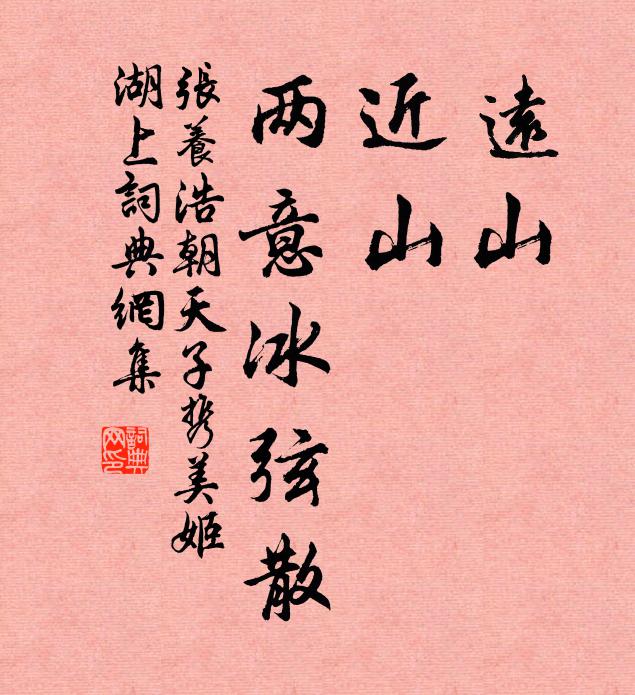 遠山
近山
两意冰弦散
張養浩朝天子携美姬
湖上詞典網集
詞典网印